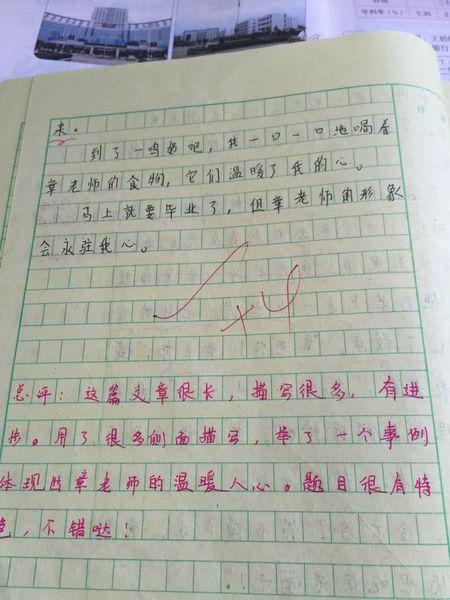 年利率（%） 0.35
评
来。
到了一鸣奶吧，我一口一口地喝着
章老师的食物，它们温暖了我的心。
马上就要毕业了，但章老师的形象
会永驻我心。
+4
总评：这篇文章很长，描写很多，有进
步。用了很多侧面描写，举了一个事例
体现出章老师的温暖人心。题目很有特
色，不错哒！